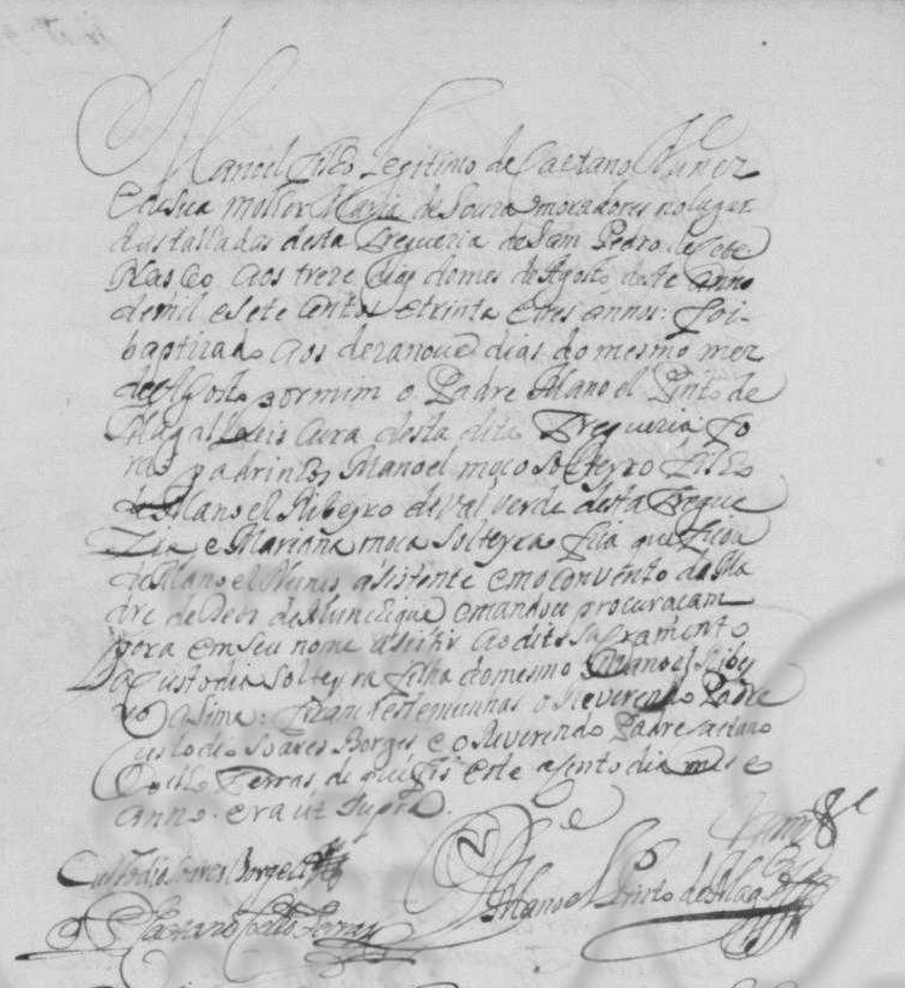 Manoel filho Legitimo de Caetano Nunez
e de sua molher Maria de Souza moradores no lugar
das talladas desta Fregueria de San Pedro de
aos treze dias do mes de Agosto deste anno
de mil e sete centos e trinta e tres annos: foi
baptizado aos dezanove dias do mesmo mez
de Agosto por mim o Padre Manoel Pinto de
Magalhais Cura desta dita Fregueria fo
rão padrinhos Manoel moco solteyro filho
de Manoel Ribeyro de Val verde desta Fregue
zia e Mariana moca solteyra filha que ficou
de Manoel Nunes asistente em o convento da Ma
dre de Deos de e mandou procuracam
pera em seu nome asistir ao dito sacramento
a Custodia solteyra filha do mesmo Manoel Ribey
ro asima: foram testemunhas o Reverendo Padre
Custodio Soares Borges e o Reverendo Padre Caetano
Coelho Ferras, de que fis este asento dia mes e
anno. era ut supra.
Custodio Soares Borges
O Pe Manoel Pinto de Magalhais
Pe Caetano Coelho Ferras